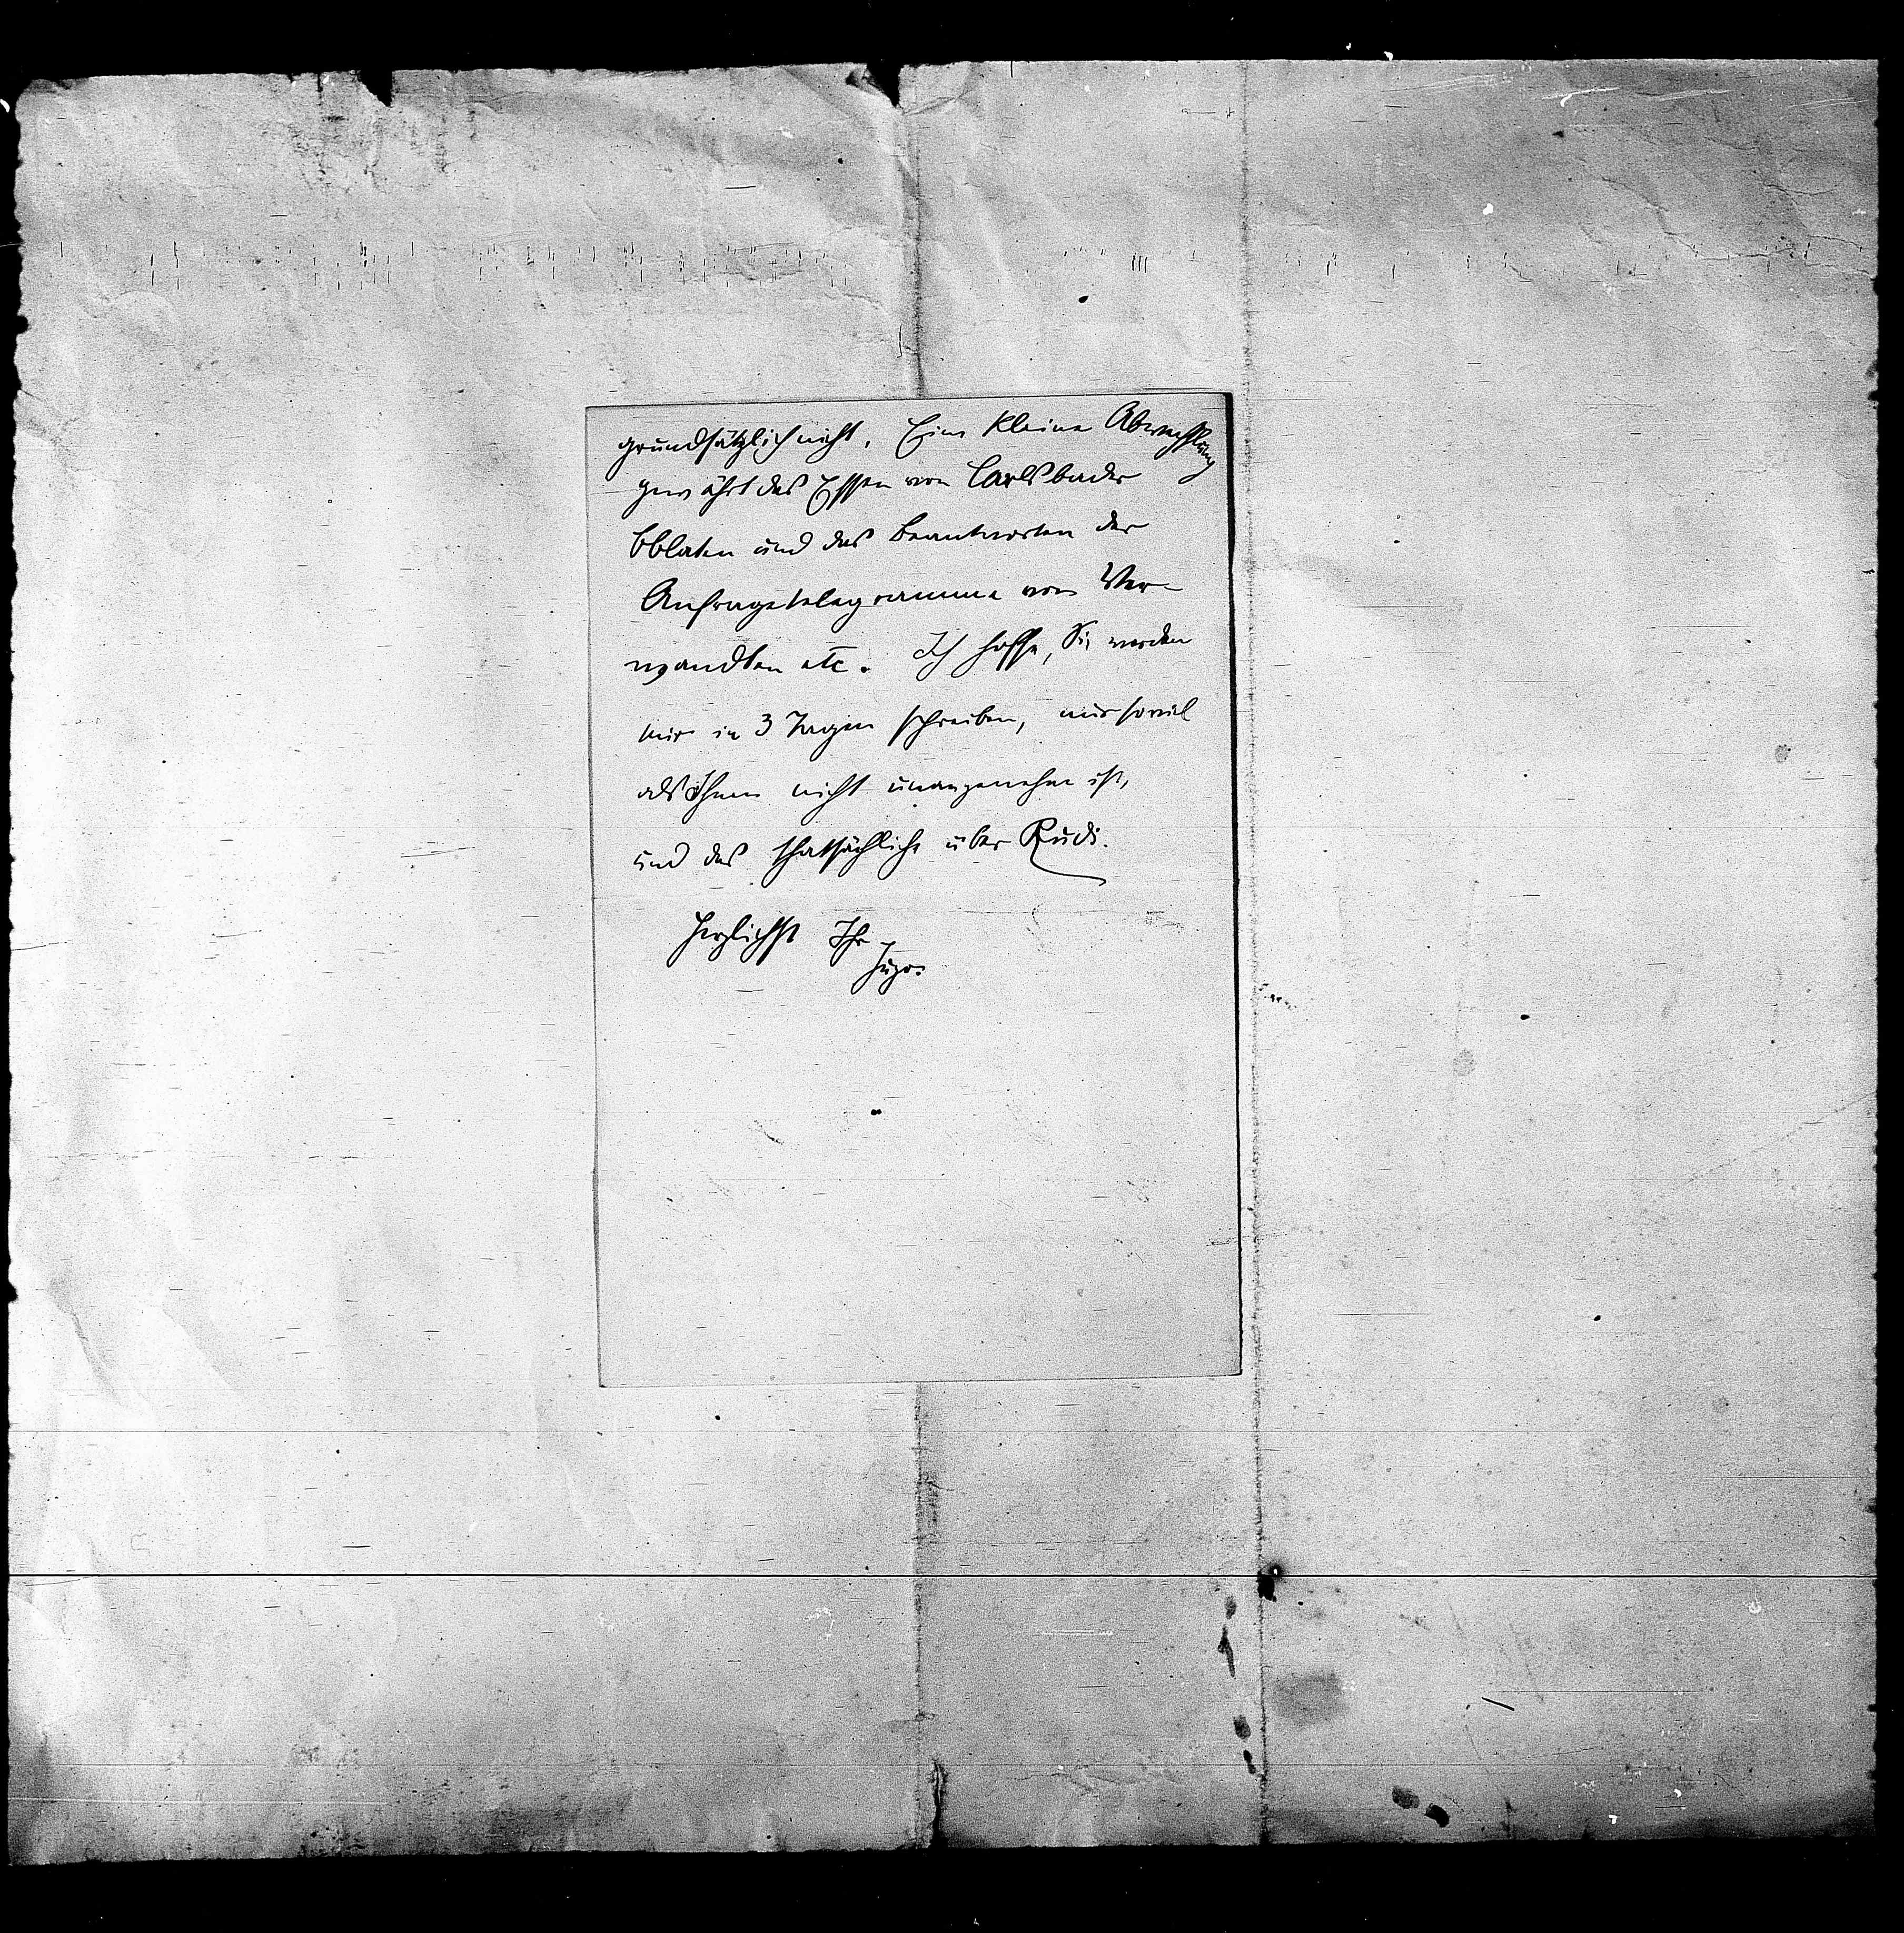 grundsätzlich nicht. Eine kleine Abwechslung
gewährt das Essen von Carlsbader
Oblaten und das Beantworten der
Anfragetelegramme von Ver-
wandten etc. Ich hoffe, Sie werden
mir in 3 Tagen schreiben, nur soviel
als Ihnen nicht unangenehm ist,
und das thatsächliche über Rudi.
Herzlichst Ihr
Hugo.